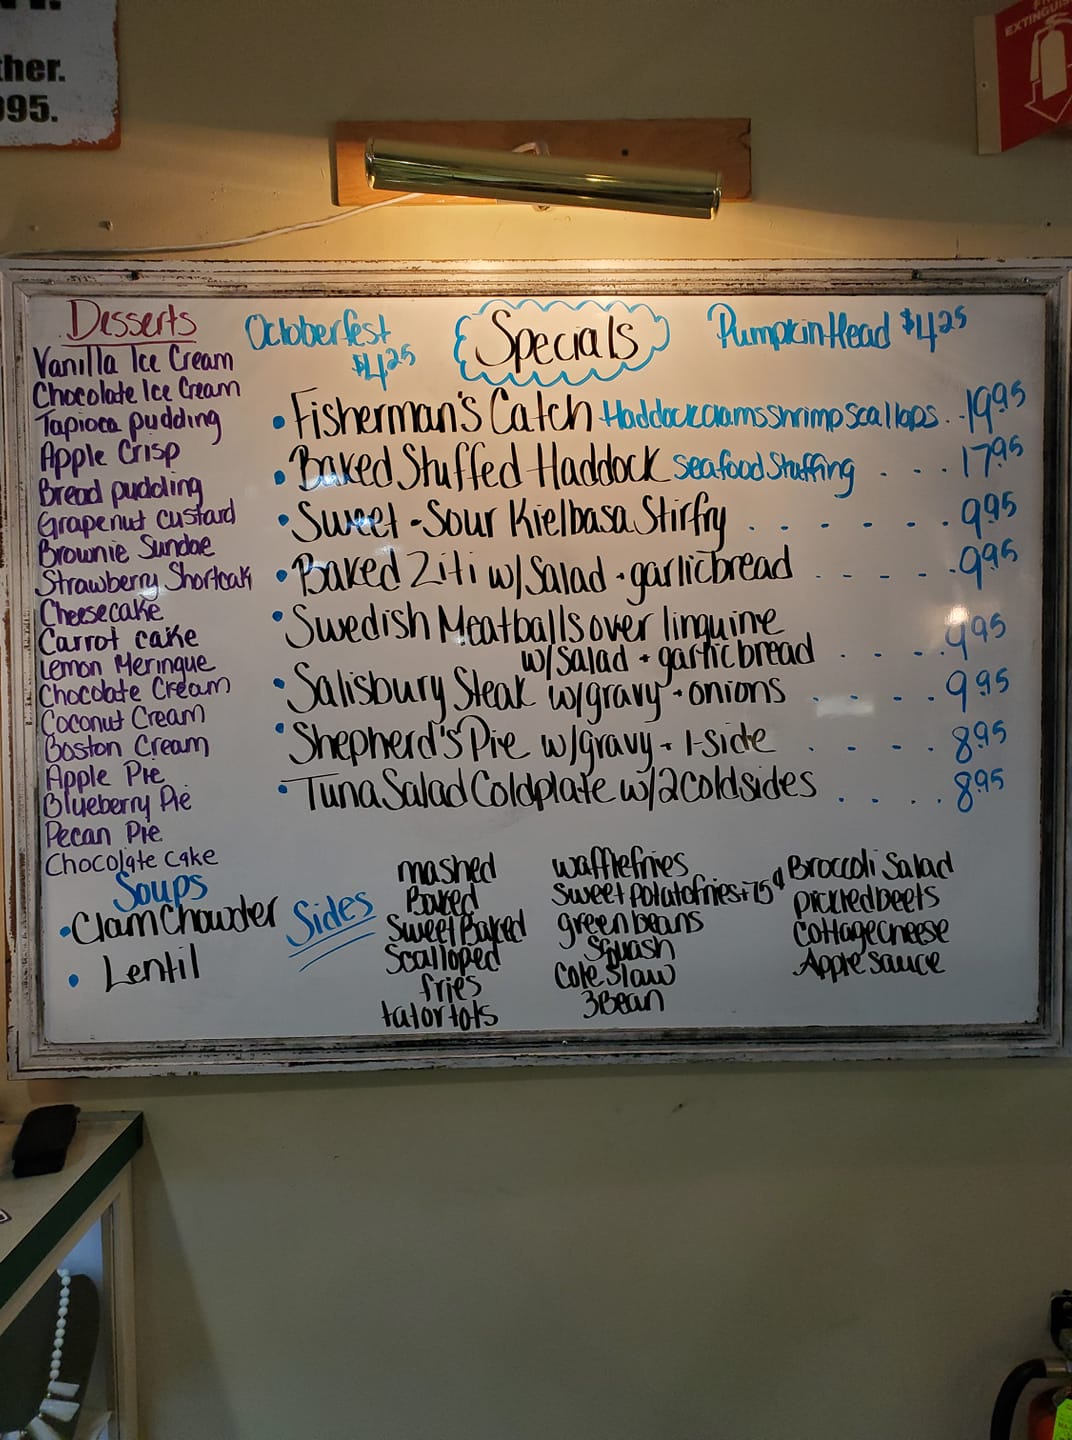 ther.
995.
EXTINGUIS
Desserts
Vanilla Ice Cream
Chocolate Ice Cream
Tapioca pudding
Apple Crisp
Bread pudding
Grapenut custard
Brownie Sundae
Strawberry Shortcak
Cheesecake
Carrot cake
Lemon Meringue
Chocolate Cream
Coconut Cream
Boston Cream
Apple Pie
Blueberry Pie
Pecan Pie
Chocolate cake
Soups
• Clam Chowder
• Lentil
Octoberfest
$4.25
Specials
Pumpkin Head $4.25
• Fisherman's Catch Haddock clams shrimp scallops . 19.95
• Baked Stuffed Haddock seafood stuffing . . . 17.95
• Sweet - Sour Kielbasa Stirfry . . . . . . . 9.95
• Baked Ziti w/Salad + garlic bread . . . . . 9.95
• Swedish Meatballs over linguine
w/Salad + garlic bread . . . . 9.95
• Salisbury Steak w/gravy + onions . . . . . 9.95
• Shepherd's Pie w/gravy + 1-side . . . . . 8.95
• Tuna Salad Coldplate w/2 cold sides . . . . 8.95
Sides
mashed
Baked
Sweet Baked
Scalloped
fries
tator tots
waffle fries
sweet potato fries +75¢
green beans
Squash
Cole Slaw
3 Bean
Broccoli Salad
pickled beets
Cottage cheese
Apple sauce